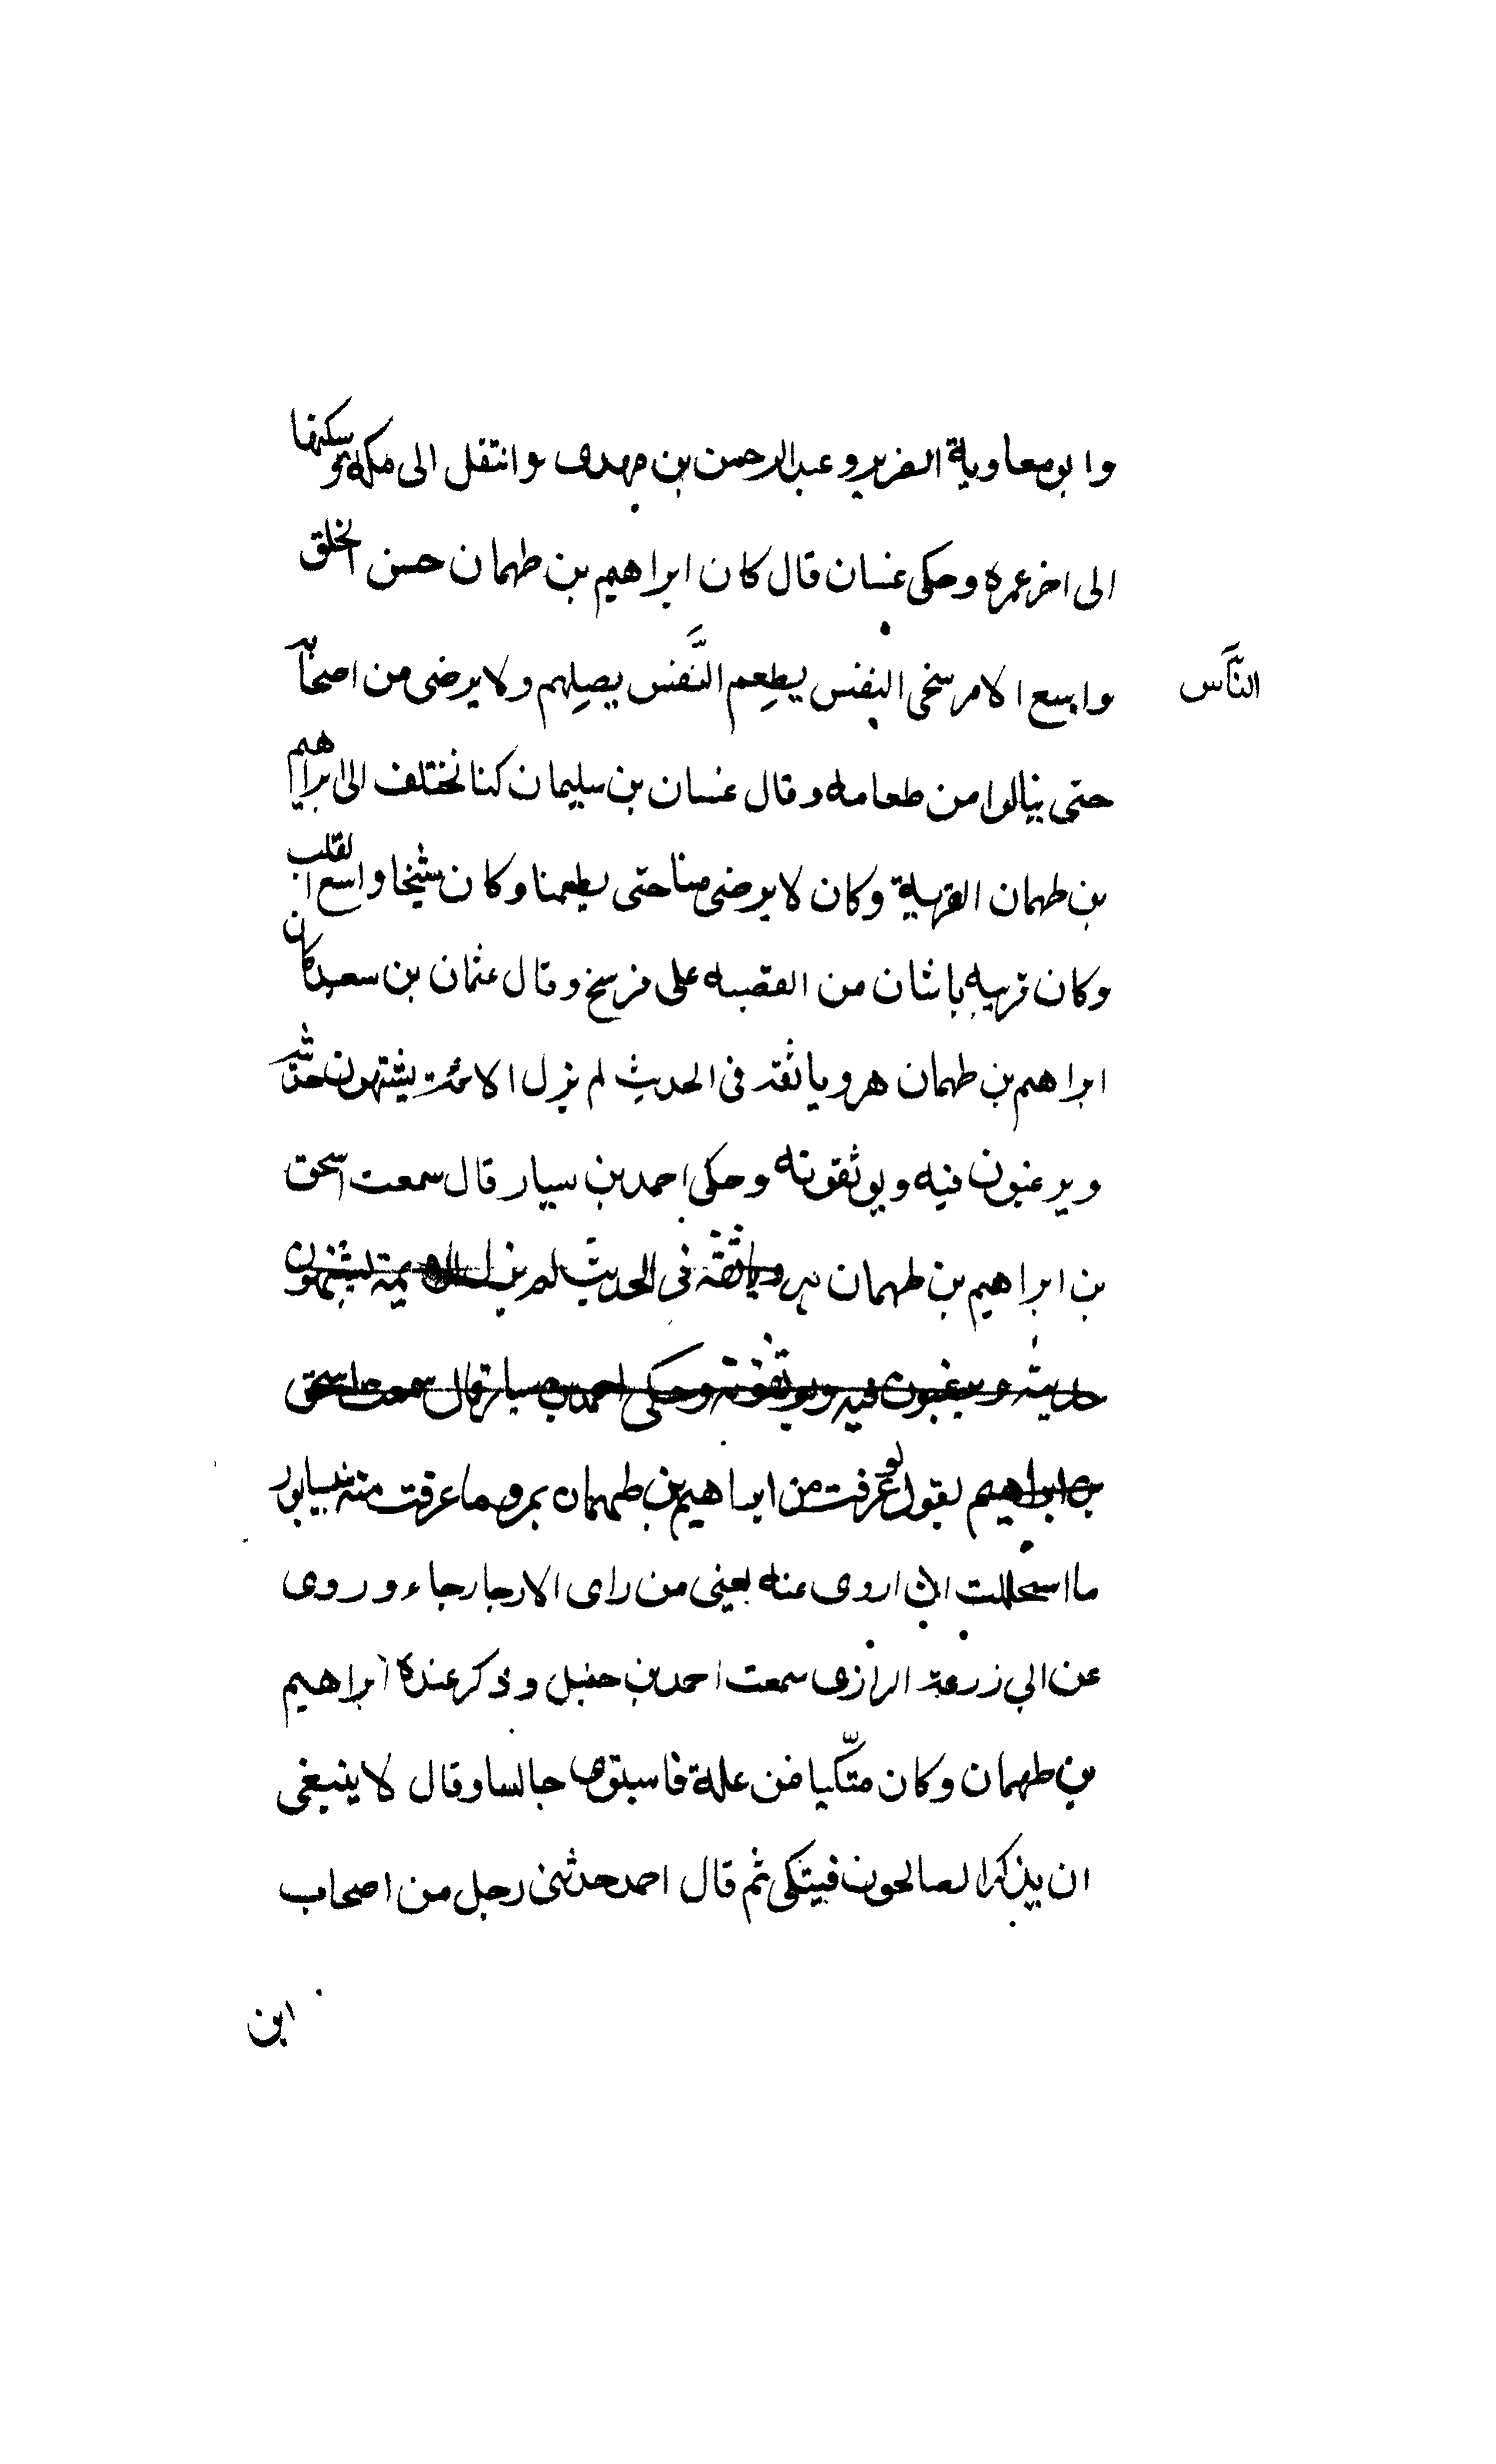 وابومعاوية الضرير وعبدالرحمن بن مهدى وانتقل الى مكه وسكنها
الى اخر عمره وحكى غسان قال كان ابراهيم بن طهمان حسن الخلق
واسع الامر سخى النفس يطعم النَّفس يصلهم ولا يرضى من اصحابه
النَّاس
حتى ينالوا من طعامه وقال غسان بن سليمان كنا نختلف الى ابراهيم
بن طهمان القرية وكان لا يرضى منا حتى يطعمنا وكان شيخا واسع القلب
وكان قريه باشان من القصبه على فرسخ وقال عثمان بن سعيد كان
ابراهيم بن طهمان هرويا ثقة فى الحديث لم يزل الائمة يشتهون حديثه
ويرغبون فيه ويوثقونه وحكى احمد بن سيار قال سمعت اسحق
بن ابراهيم بن طهمان هرويا ثقة فى الحديث لم يزل الايمة يشتهون
حديثه ويرغبون فيه ويوثقونه وحكى احمد بن سيار قال سمعت اسحق
بن ابراهيم يقول لو عرفت من ابراهيم بن طهمان بمرو ما عرفت منه نيسابور
ما استحللت ان اروى عنه يعنى من راى الارجا رجاء وروى
عن ابي زرعة الرازى سمعت احمد بن حنبل وذكر عنده ابراهيم
بن طهمان وكان متّكيا من علة فاستوى جالسا وقال لا ينبغى
ان يذكر الصالحون فيتكى ثم قال احمد حدثنى رجل من اصحاب
ابن